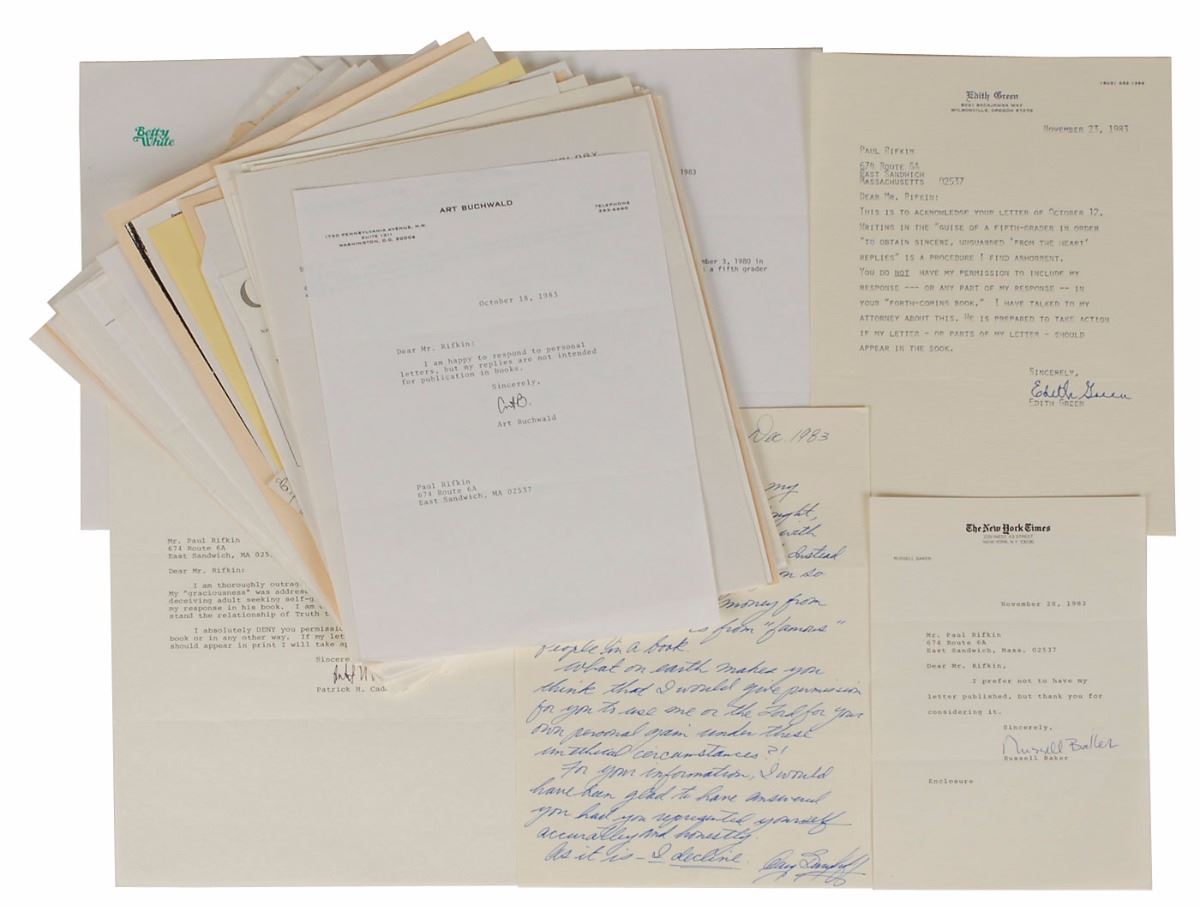 Betty
White
1983
mber 3, 1980 in
i a fifth grader
Edith Green
WILSONVILLE, OREGON 97070
November 23, 1983
Paul Rifkin
674 Route 6A
East Sandwich
Massachusetts 02537
Dear Mr. Rifkin:
This is to acknowledge your letter of October 12.
Writing in the "guise of a fifth-grader in order
"to obtain sincere, unguarded 'from the heart'
replies" is a procedure I find abhorrent.
You do not have my permission to include my
response --- or any part of my response -- in
your "forth-coming book." I have talked to my
attorney about this. He is prepared to take action
if my letter - or parts of my letter - should
appear in the book.
Sincerely,
Edith Green
Edith Green
ART BUCHWALD
TELEPHONE
1750 PENNSYLVANIA AVENUE, N.W.
SUITE 1311
WASHINGTON, D.C. 20006
October 18, 1983
Dear Mr. Rifkin:
I am happy to respond to personal
letters, but my replies are not intended
for publication in books.
Sincerely,
Art B.
Art Buchwald
Paul Rifkin
674 Route 6A
East Sandwich, MA 02537
Mr. Paul Rifkin
674 Route 6A
East Sandwich, MA 025
Dear Mr. Rifkin:
I am thoroughly outrag
My "graciousness" was addres
deceiving adult seeking self-g
my response in his book. I am
stand the relationship of Truth t
I absolutely DENY you permissi
book or in any other way. If my let
should appear in print I will take ap
Sincere
Patrick H. Cad
Dec. 1983
my
ght,
with
Instead
on so
money from
s from "famous"
people in a book.
What on earth makes you
think that I would give permission
for you to use me or the Lord for your
own personal gain under these
unethical circumstances?!
For your information, I would
have been glad to have answered
you had you represented yourself
accuratley and honestly.
As it is - I decline.
The New York Times
229 WEST 43 STREET
NEW YORK, N.Y. 10036
RUSSELL BAKER
November 28, 1983
Mr. Paul Rifkin
674 Route 6A
East Sandwich, Mass. 02537
Dear Mr. Rifkin,
I prefer not to have my
letter published, but thank you for
considering it.
Sincerely,
Russell Baker
Russell Baker
Enclosure